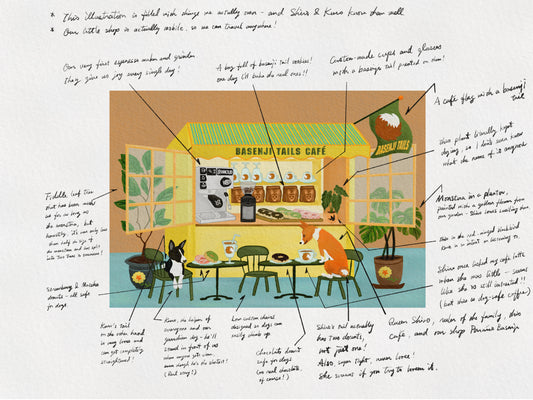 * This illustration is filled with things we actually own - and Shiro & Kuro know them well
* Our little shop is actually mobile, so we can travel anywhere!
Our very first espresso maker and grinder
They give us joy every single day!
A box full of basenji tail cookies!
One day I'll bake the real ones!!
Custom-made cups and glasses
with a basenji tail printed on them!
A café flag with a basenji
tail
BASENJI TAILS
BASENJI TAILS CAFÉ
This plant literally kept
dying, so I don't even know
what the name of it anymore
Monstera in a planter,
painted with a golden flower from
our garden - Shiro loves
Fiddle leaf Tree
that has been with
us for as long as
the monstera, but
honestly, it's only less
than half its size of
the monstera and has split
into two trees
Strawberry & Matcha
donuts - all safe
for dogs.
Kuro is intent on listening to
Shiro once licked my cafe latte
when she was little - seems
like she is still interested!!
(but this is dog-safe coffee)
Queen Shiro, ruler of the family, this
café, and our shop
Kuro's tail
on the other hand
is very loose and
can get completely
straightened!
Kuro, the helper of
everyone and our
guardian dog - he'll
stand in front of us
when anyone gets near
even though he's the shortest!
Low custom chairs
designed so dogs can
easily climb up
Chocolate donut
safe for dogs
(no real chocolate,
of course!)
Shiro's tail actually
has two donuts,
not just one!
Also, super tight, never loose!
She screams if you try to loosen it.